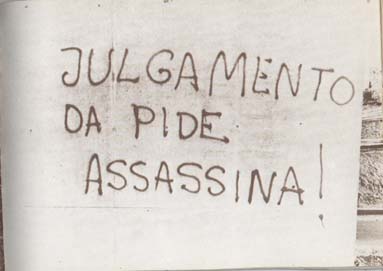 JULGAMENTO
DA PIDE
ASSASSINA!